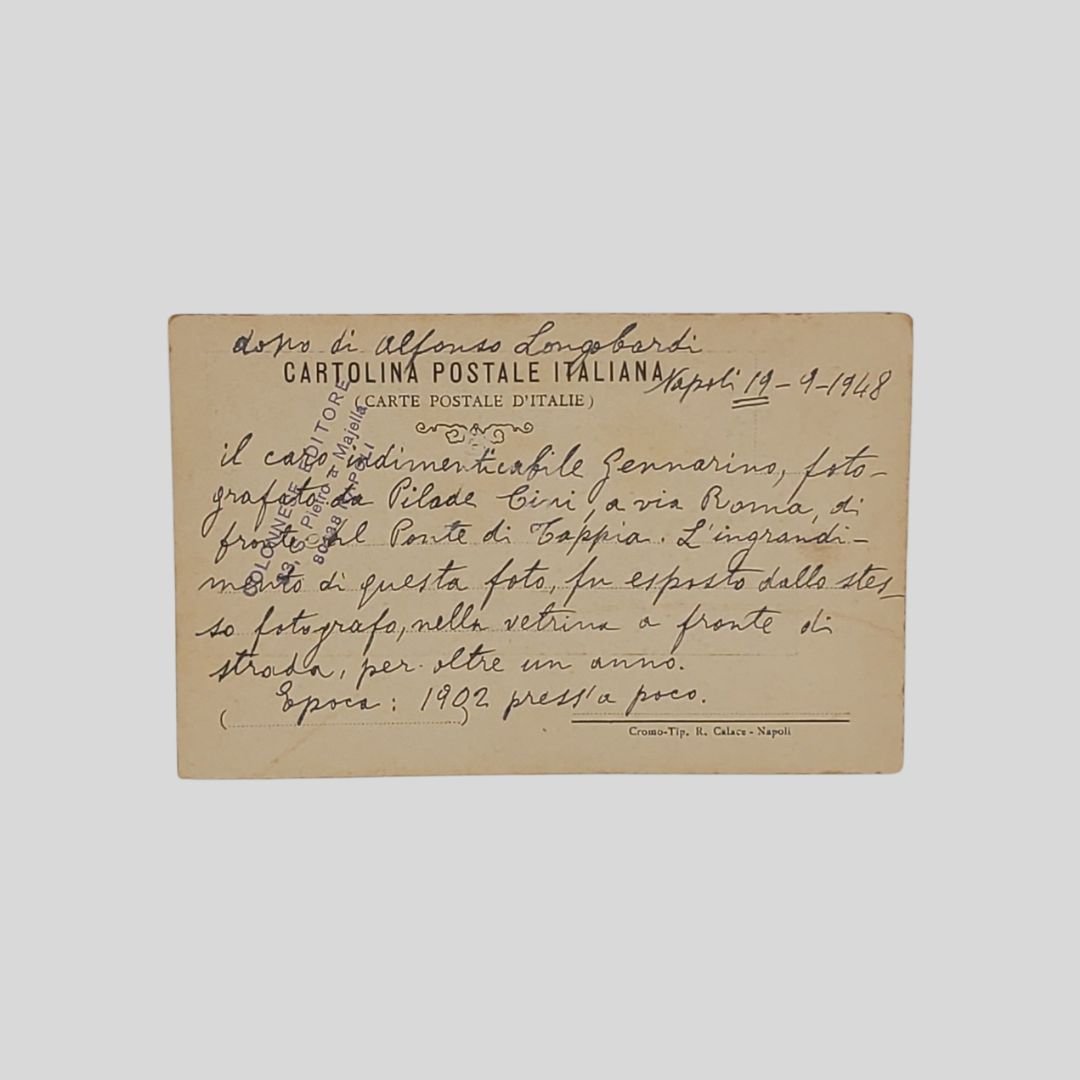 dono di Alfonso Longobardi
CARTOLINA POSTALE ITALIANA
(CARTE POSTALE D'ITALIE)
Napoli 19-9-1948
il caro indimenticabile Gennarino, foto-
grafato da Pilade Cini, a via Roma, di
fronte al Ponte di Tappia. L'ingrandi-
mento di questa foto, fu esposto dallo stes_
so fotografo, nella vetrina a fronte di
strada, per oltre un anno.
Epoca: 1902 press'a poco.
Cromo-Tip. R. Calace - Napoli
COLONNESE EDITORE
33, S. Pietro a Majella
80138 NAPOLI